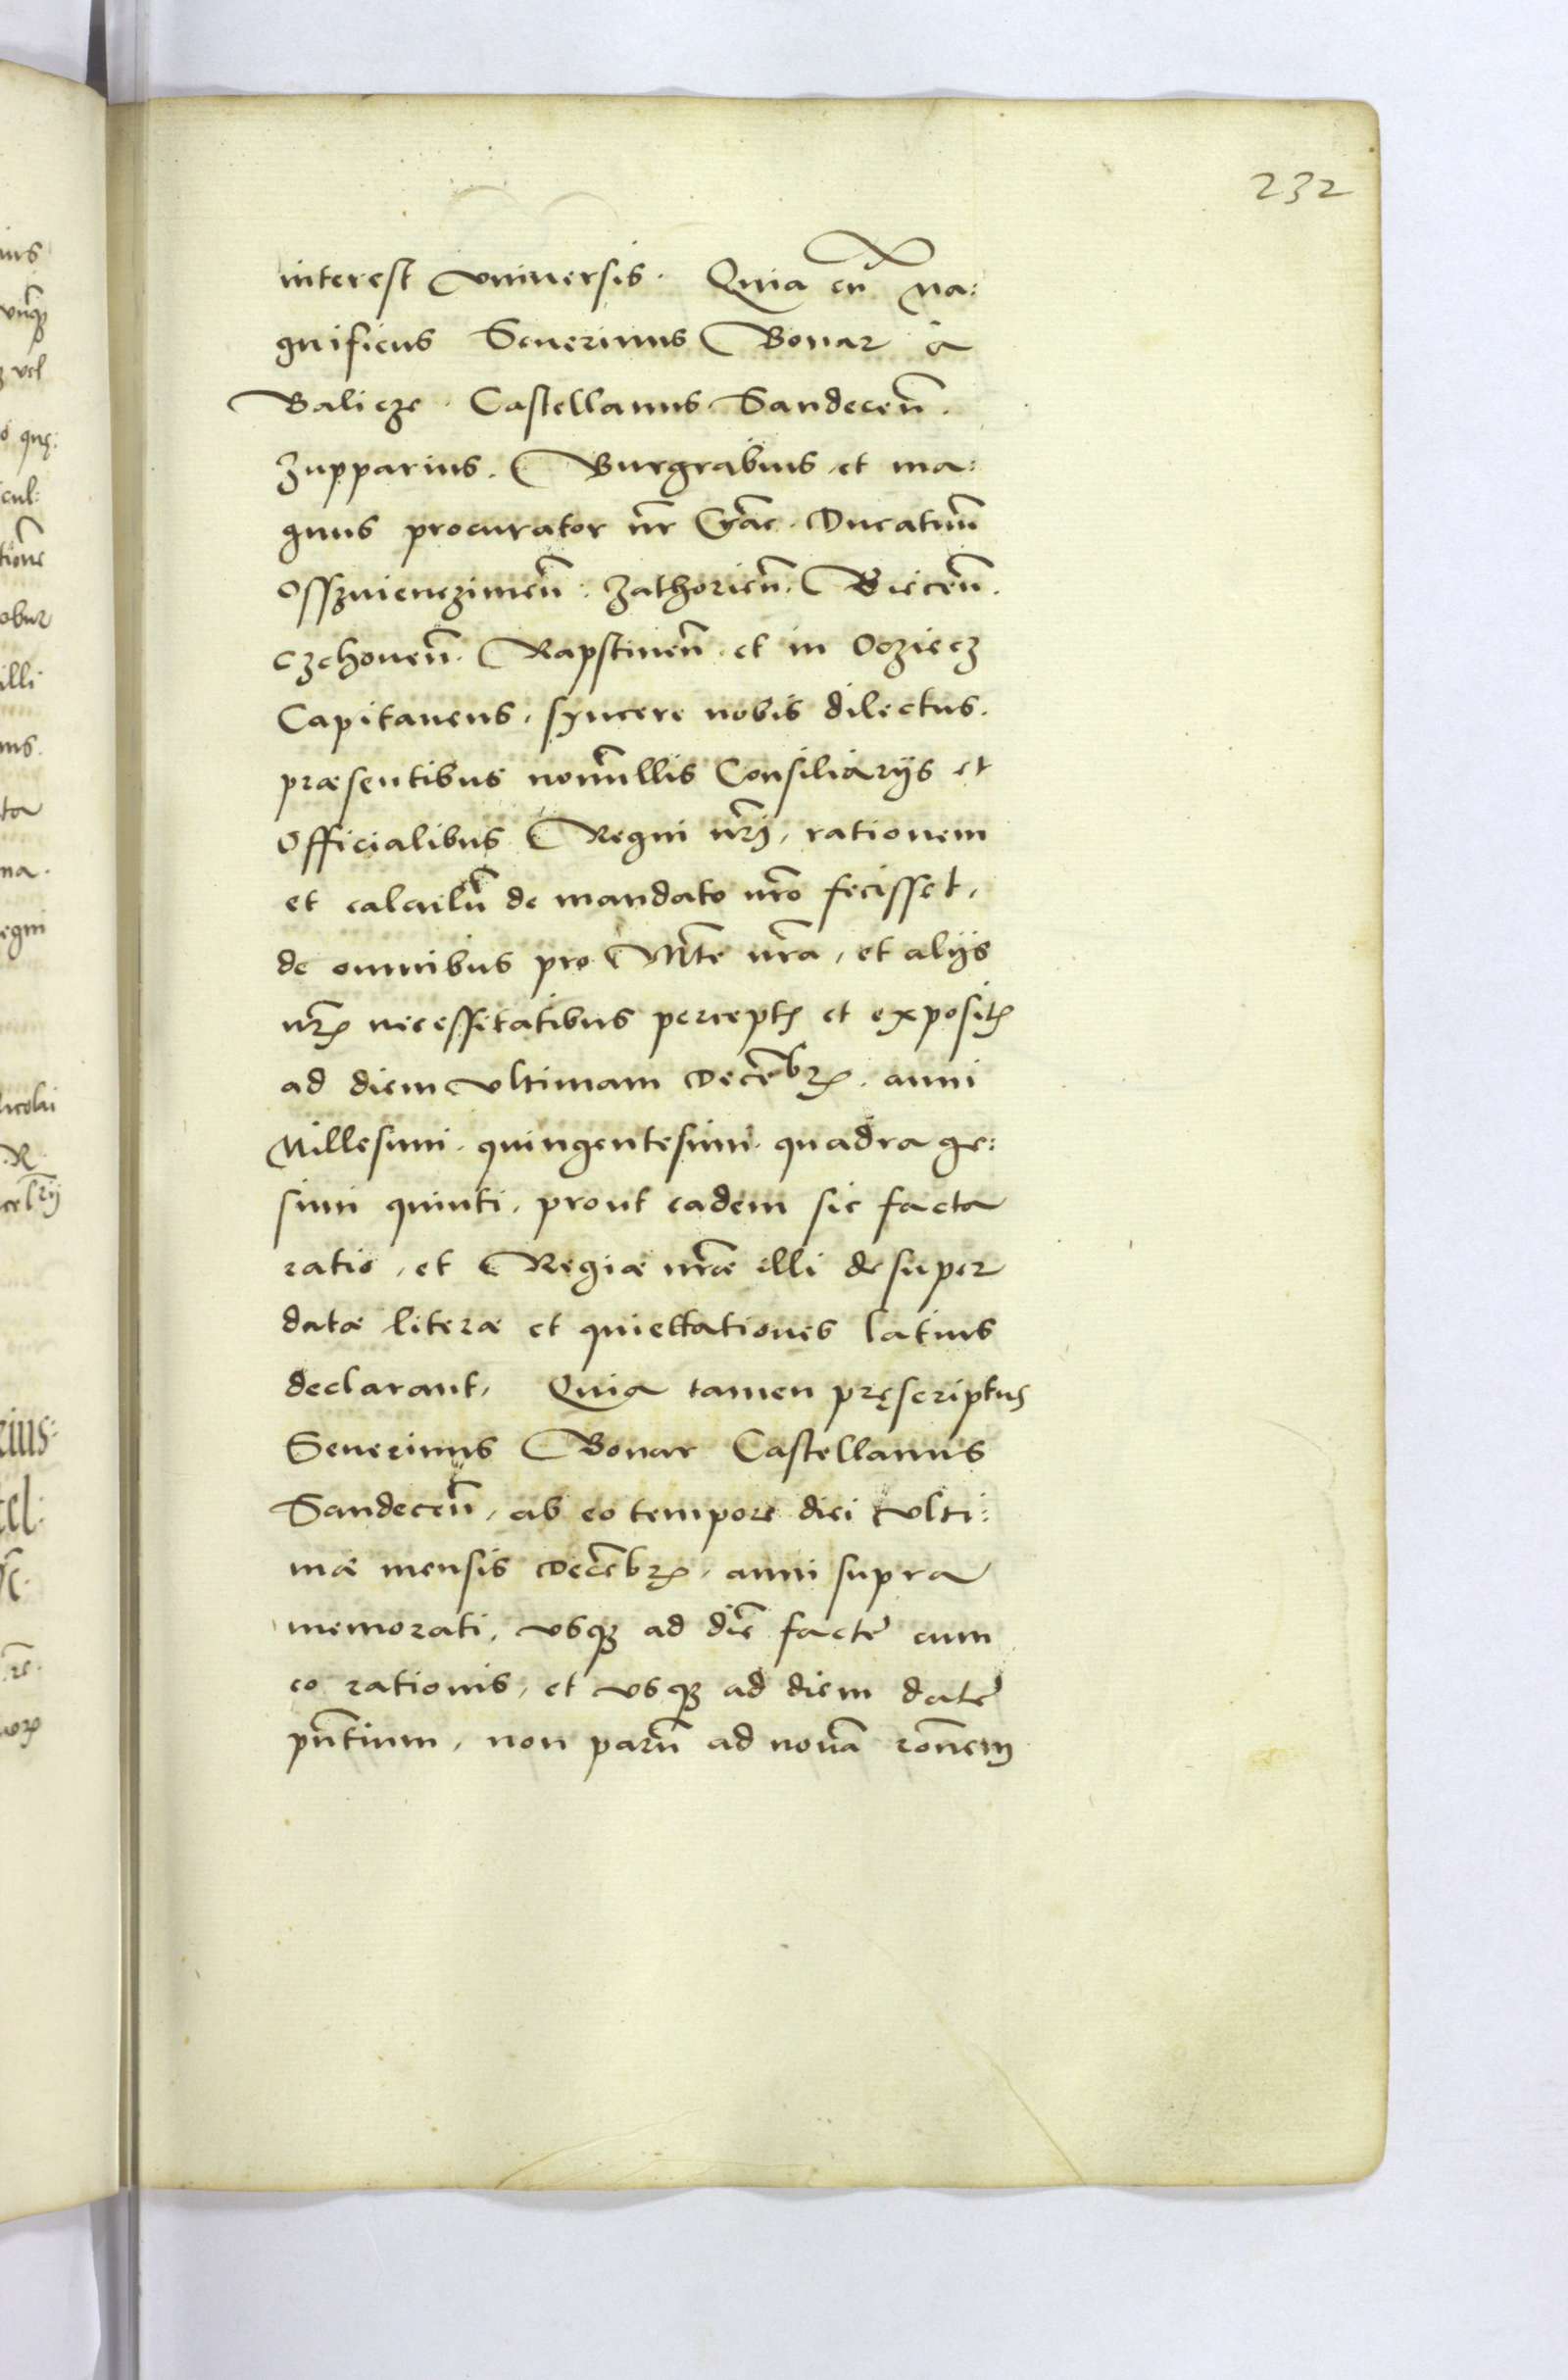 232
interest vniuersis. Quia cũ Ma:
gnificus Seuerinus Bonar à
Balicze. Castellanus Sandeceñ.
Zupparius. Burgrabius et ma:
gnus procurator nr̃ Crac̃. Ducatuũ
Osszwienczimeñ. Zathorieñ. Bieceñ.
Czchoueñ. Rapstineñ et in Ocziecz
Capitaneus, syncere nobis dilectus.
præsentibus nonnullis Consiliarijs et
Officialibus Regni nr̃j, rationem
et calculũ de mandato nr̃o fecisset,
de omnibus pro Mte nr̃a, et alijs
nr̃is necessitatibus perceptis et expositis
ad diem vltimam Decẽbris. anni
Millesimi. quingentesimi. quadrage:
simi quinti, prout eadem sic facta
ratio, et Regiæ nr̃æ illi desuper
datæ literæ et quiettationes latius
declarant, Quia tamen pręscriptus
Seuerinus Bonar Castellanus
Sandeceñ, ab eo tempore diei vlti:
mæ mensis Decẽbris, anni supra
memorati, vsq; ad diẽ factę cum
eo rationis, et vsq; ad diem datę
pñtium, non parũ ad nouã rõnem